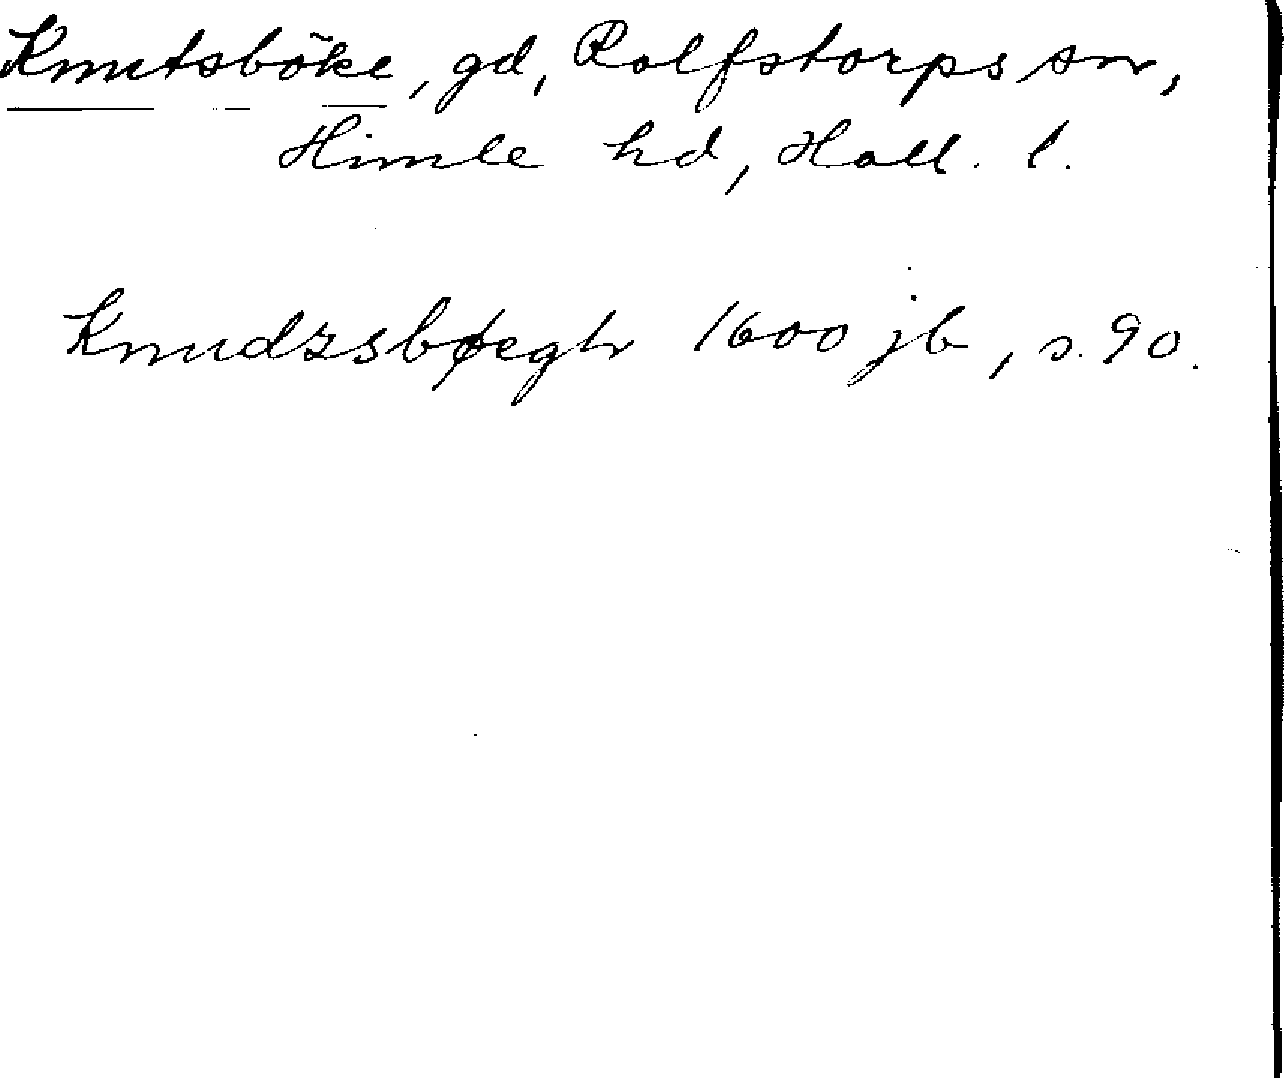 Knutsböke, gd, Rolfstorps sn,
Himle hd, Hall. l.
Knudzsbøegh 1600 jb, s. 90.